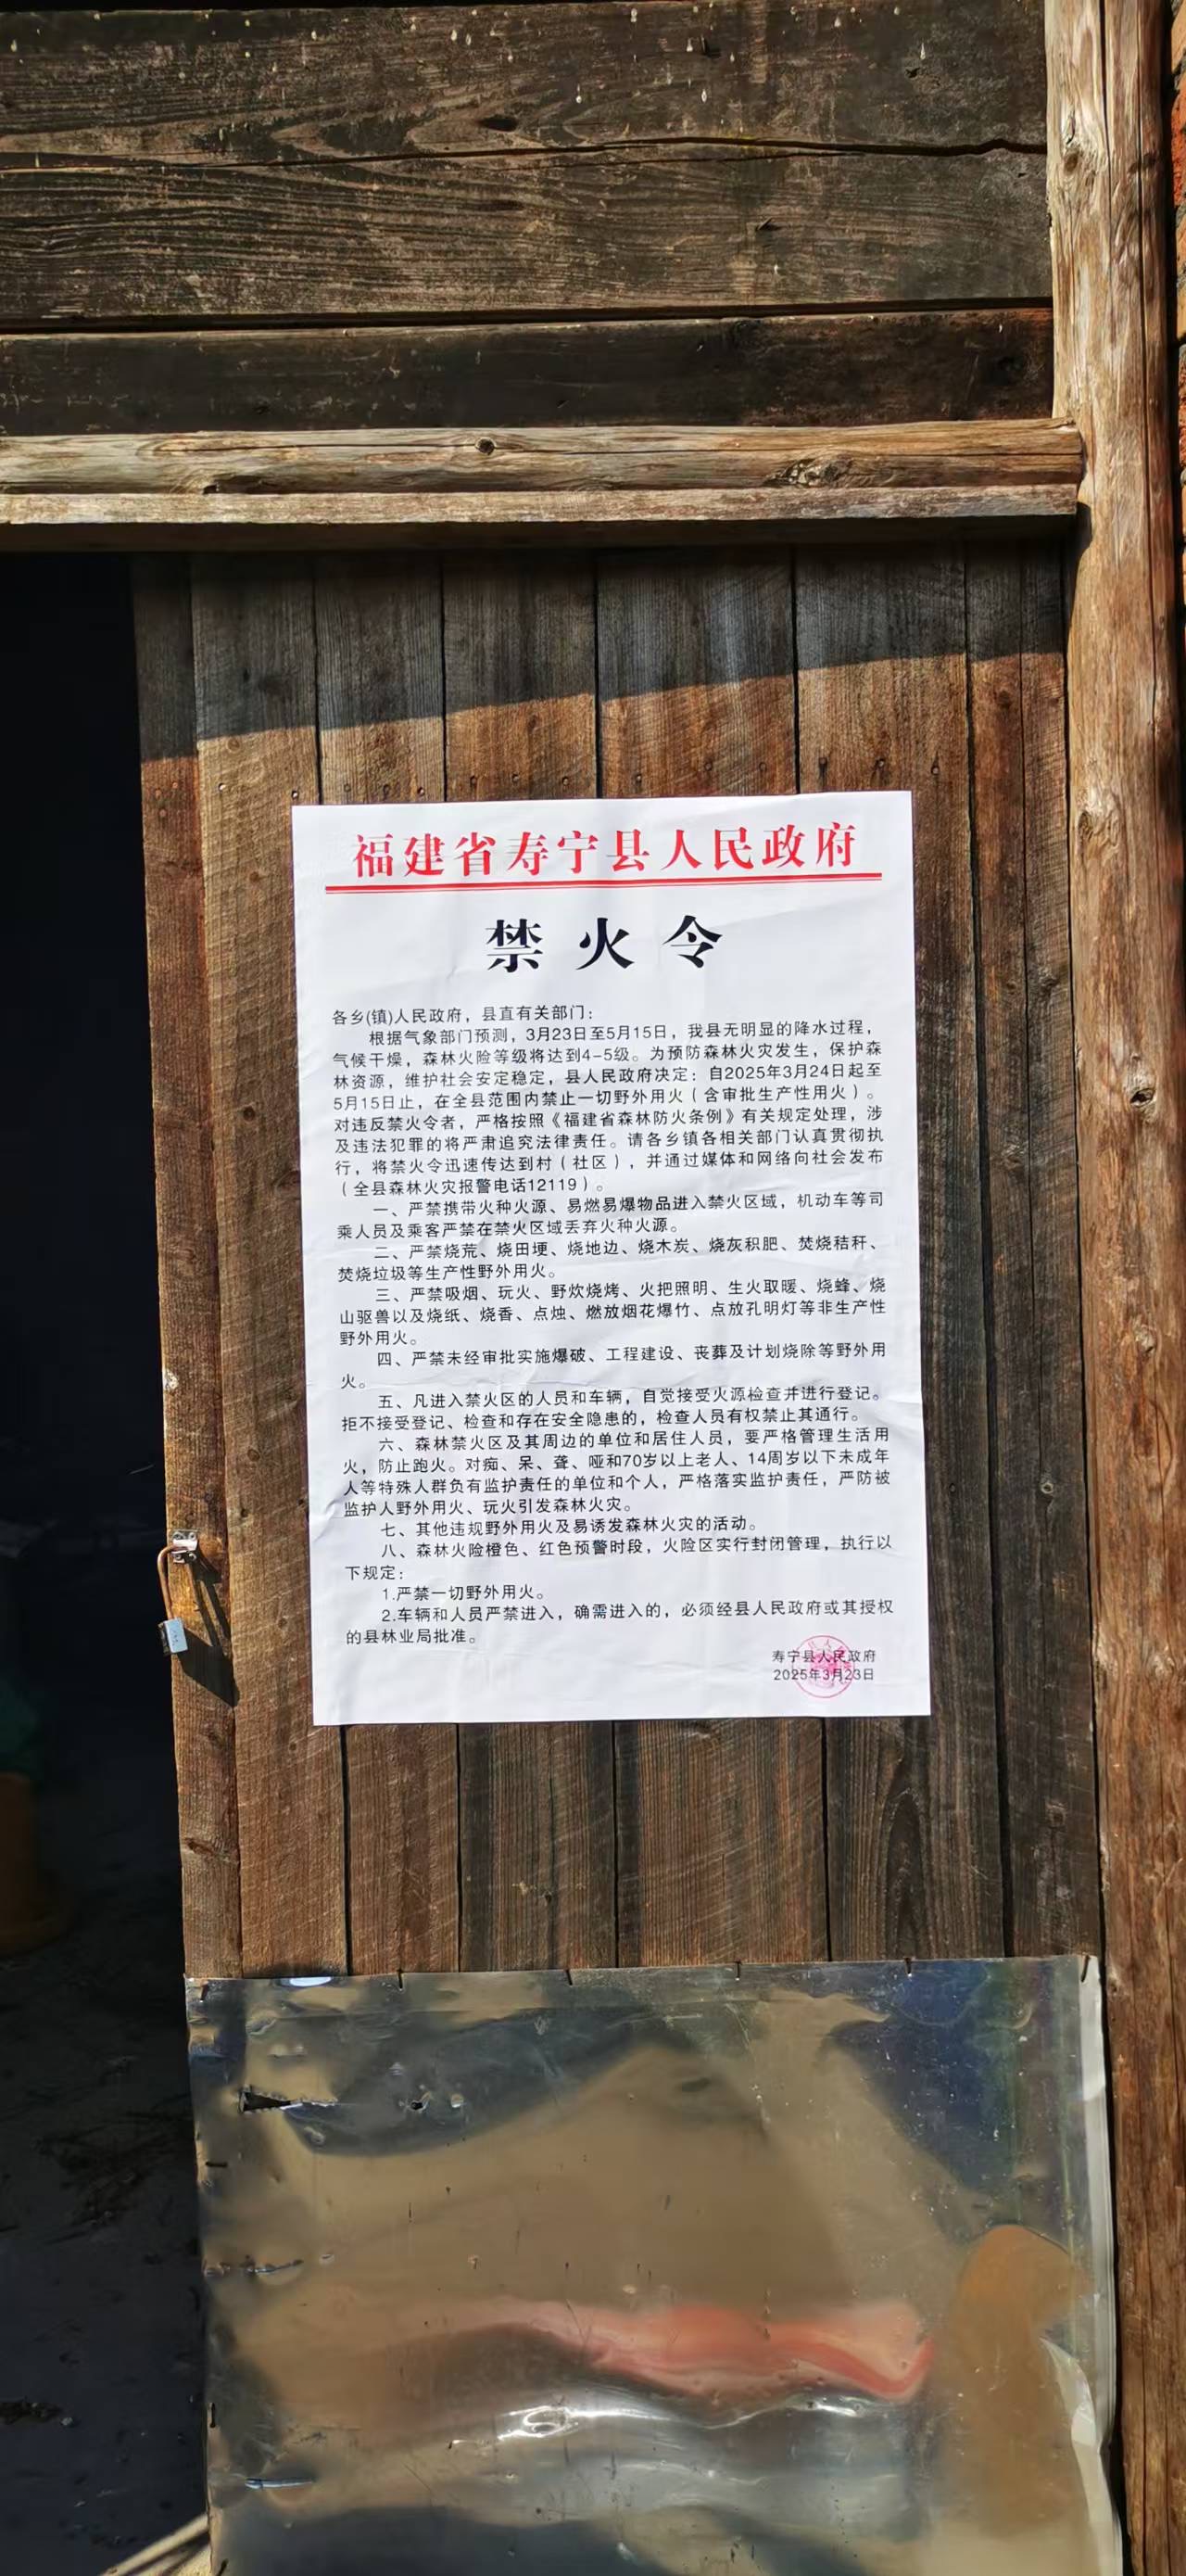 福建省寿宁县人民政府
禁火令
各乡(镇)人民政府，县直有关部门：
根据气象部门预测，3月23日至5月15日，我县无明显的降水过程，
气候干燥，森林火险等级将达到4-5级。为预防森林火灾发生，保护森
林资源，维护社会安定稳定，县人民政府决定：自2025年3月24日起至
5月15日止，在全县范围内禁止一切野外用火（含审批生产性用火）。
对违反禁火令者，严格按照《福建省森林防火条例》有关规定处理，涉
及违法犯罪的将严肃追究法律责任。请各乡镇各相关部门认真贯彻执
行，将禁火令迅速传达到村（社区），并通过媒体和网络向社会发布
（全县森林火灾报警电话12119）。
一、严禁携带火种火源、易燃易爆物品进入禁火区域，机动车等司
乘人员及乘客严禁在禁火区域丢弃火种火源。
二、严禁烧荒、烧田埂、烧地边、烧木炭、烧灰积肥、焚烧秸秆、
焚烧垃圾等生产性野外用火。
三、严禁吸烟、玩火、野炊烧烤、火把照明、生火取暖、烧蜂、烧
山驱兽以及烧纸、烧香、点烛、燃放烟花爆竹、点放孔明灯等非生产性
野外用火。
四、严禁未经审批实施爆破、工程建设、丧葬及计划烧除等野外用
火。
五、凡进入禁火区的人员和车辆，自觉接受火源检查并进行登记。
拒不接受登记、检查和存在安全隐患的，检查人员有权禁止其通行。
六、森林禁火区及其周边的单位和居住人员，要严格管理生活用
火，防止跑火。对痴、呆、聋、哑和70岁以上老人、14周岁以下未成年
人等特殊人群负有监护责任的单位和个人，严格落实监护责任，严防被
监护人野外用火、玩火引发森林火灾。
七、其他违规野外用火及易诱发森林火灾的活动。
八、森林火险橙色、红色预警时段，火险区实行封闭管理，执行以
下规定：
1.严禁一切野外用火。
2.车辆和人员严禁进入，确需进入的，必须经县人民政府或其授权
的县林业局批准。
寿宁县人民政府
2025年3月23日